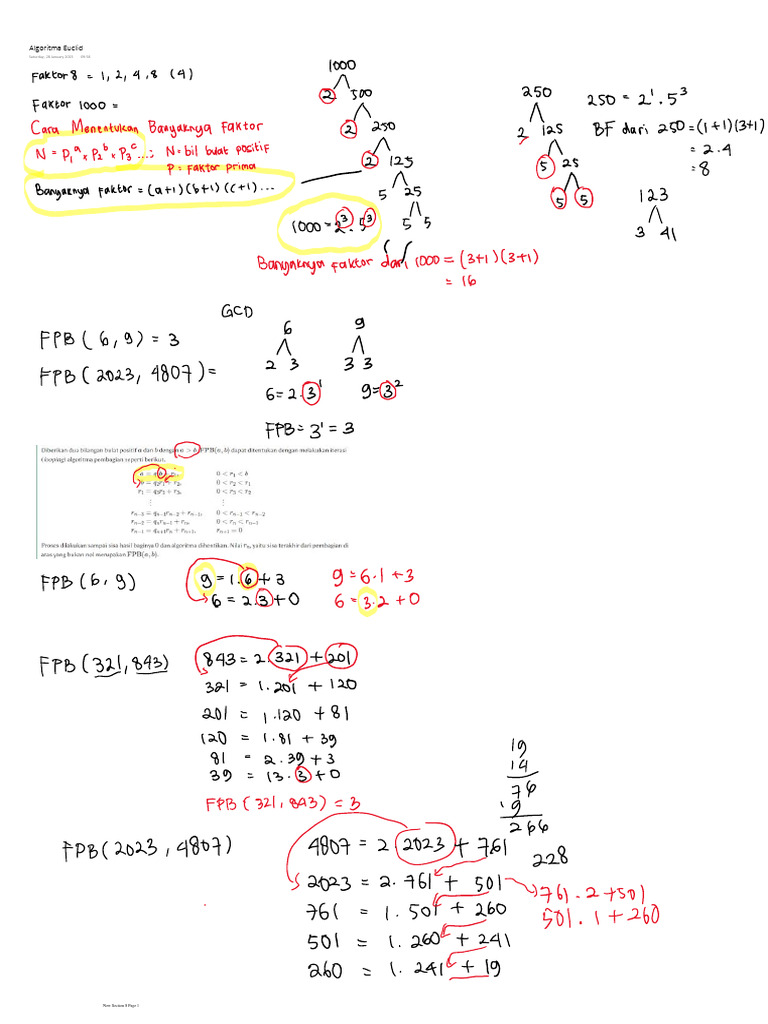 Algoritma Euclid
Faktor 8 = 1, 2, 4, 8 (4)
Faktor 1000 =
Cara Menentukan Banyaknya Faktor
N = P₁ᵃ × P₂ᵇ × P₃ᶜ ...; N = bil bulat positif
P = Faktor prima
Banyaknya Faktor = (a+1)(b+1)(c+1)...
1000
2 500
2 250
2 125
5 25
5 5
1000 = 2³ . 5³
Banyaknya Faktor dari 1000 = (3+1)(3+1)
= 16
250
2 125
5 25
5 5
250 = 2¹ . 5³
BF dari 250 = (1+1)(3+1)
= 2.4
= 8
123
3 41
GCD
FPB (6, 9) = 3
FPB (2023, 4807) =
6
2 3
6 = 2.3¹
9
3 3
9 = 3²
FPB = 3¹ = 3
Diberikan dua bilangan bulat positif a dan b dengan a > b. FPB(a, b) dapat ditentukan dengan melakukan iterasi
(looping) algoritma pembagian seperti berikut.
0 < r₁ < b
0 < r₂ < r₁
r₁ = q₃r₂ + r₃, 0 < r₃ < r₂
⋮ ⋮
rₙ₋₃ = qₙ₋₁rₙ₋₂ + rₙ₋₁, 0 < rₙ₋₁ < rₙ₋₂
rₙ₋₂ = qₙrₙ₋₁ + rₙ, 0 < rₙ < rₙ₋₁
rₙ₋₁ = qₙ₊₁rₙ + rₙ₊₁, rₙ₊₁ = 0
Proses dilakukan sampai sisa hasil baginya 0 dan algoritma dihentikan. Nilai rₙ, yaitu sisa terakhir dari pembagian di
atas yang bukan nol merupakan FPB(a, b).
FPB (6, 9)
9 = 1.6 + 3
6 = 2.3 + 0
9 = 6.1 + 3
6 = 3.2 + 0
FPB (321, 843)
843 = 2.321 + 201
321 = 1.201 + 120
201 = 1.120 + 81
120 = 1.81 + 39
81 = 2.39 + 3
39 = 13.3 + 0
FPB (321, 843) = 3
19
14
76
19
266
228
FPB (2023, 4807)
4807 = 2.2023 + 761
2023 = 2.761 + 501
761 = 1.501 + 260
501 = 1.260 + 241
260 = 1.241 + 19
761.2 + 501
501.1 + 260
New Section 8 Page 1